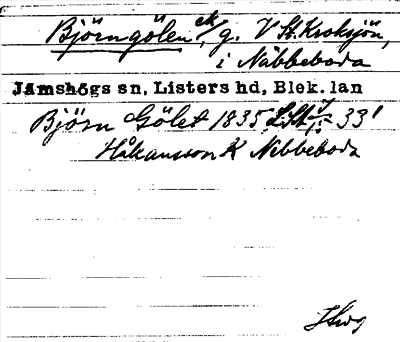 Björngölen ek/, g. V St. Kroksjön,
i Näbbeboda
Jämshögs sn, Listers hd, Blek. län
Björn Gölet 1835 LSA 33'
Håkansson K Nebbeboda